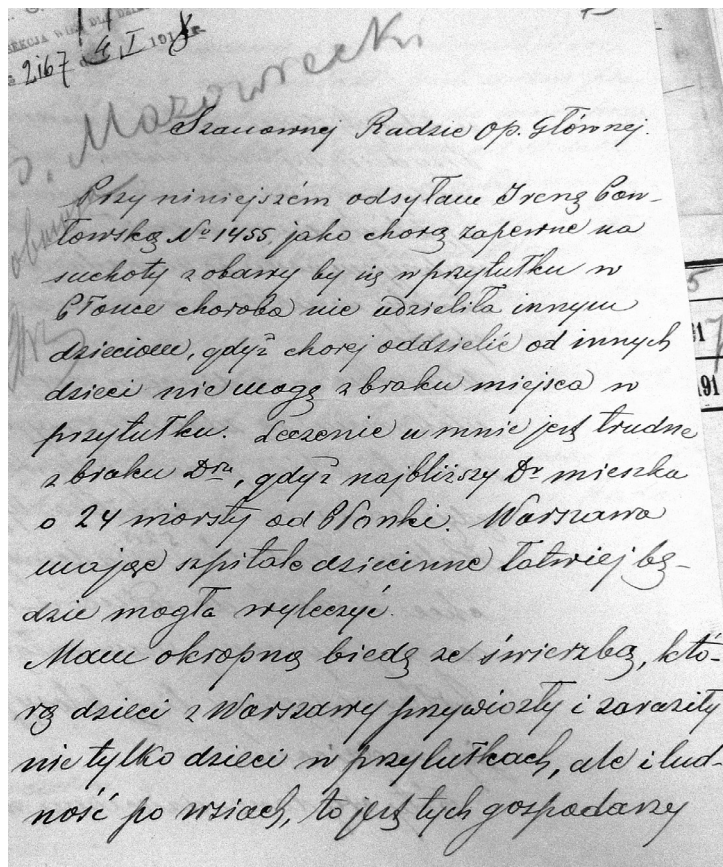 2167 4. I 191
Mazowiecki
Szanownej Radzie Op. Głównej.
Przy niniejszém odsyłam Irenę Paw-
łowską № 1455 jako chorą zapewne na
suchoty z obawy by się w przytułku w
Płonce choroba nie udzieliła innym
dzieciom, gdyż chorej oddzielić od innych
dzieci nie mogę z braku miejsca w
przytułku. Leczenie u mnie jest trudne
z braku Dra, gdyż najbliższy Dr mieszka
o 24 wiorsty od Płonki. Warszawa
mając szpitale dziecinne łatwiej bę-
dzie mogła wyleczyć.
Mam okropną biedę ze świerzbą, któ-
rą dzieci z Warszawy przywiozły i zaraziły
nie tylko dzieci w przytułkach, ale i lud-
ność po wsiach, to jest tych gospodarzy